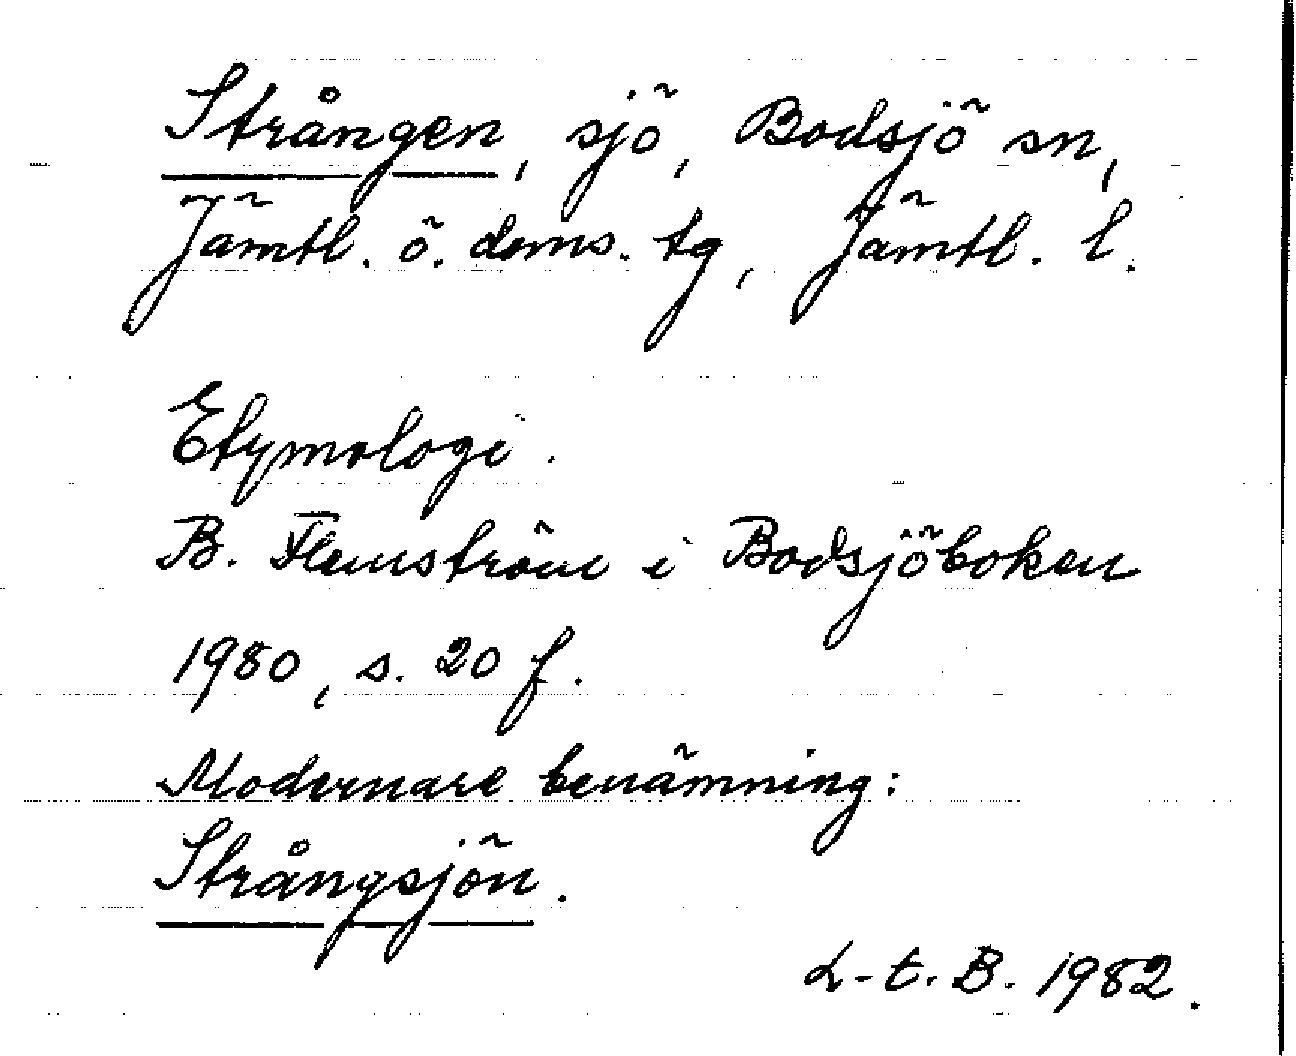 Strången, sjö, Bodsjö sn,
Jämtl. ö. doms. tg, Jämtl. l.
Etymologi.
B. Flemström i Bodsjöboken
1980, s. 20 f.
Modernare benämning:
Strångsjön.
L-t. B. 1982.